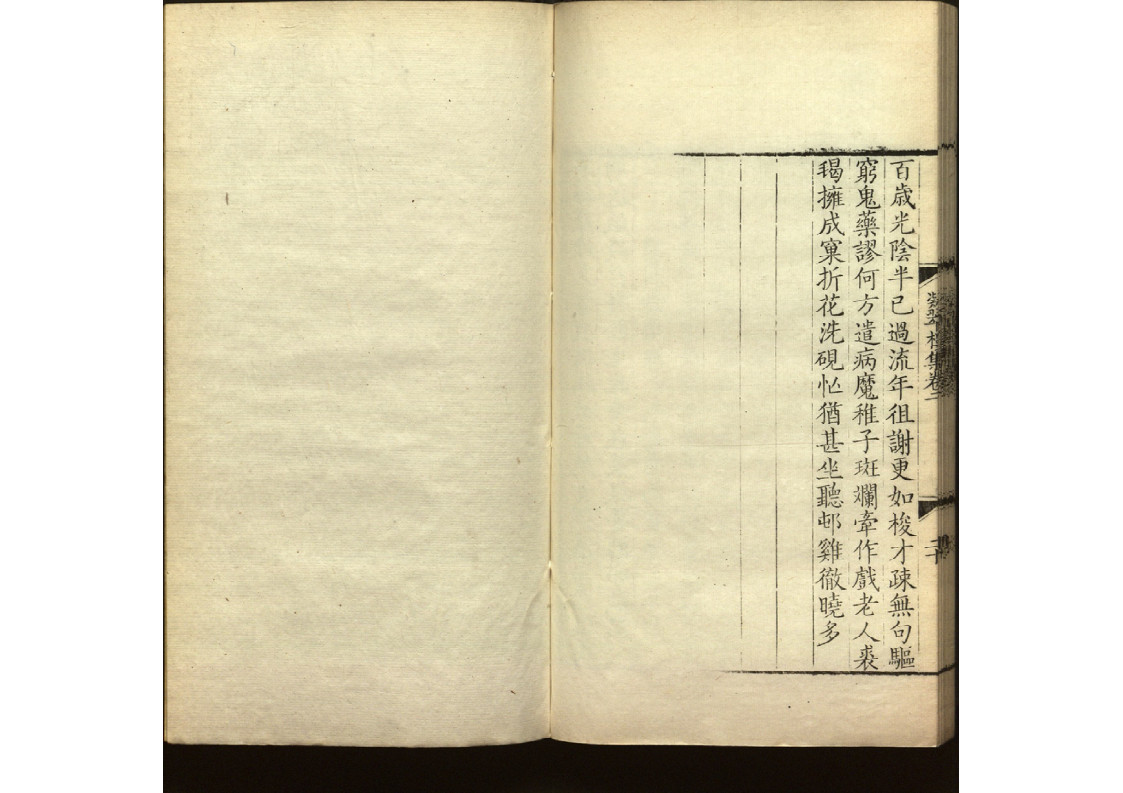 百歳光陰半已過流年徂謝更如梭才疎無句驅
窮鬼藥謬何方遣病魔稚子斑斕牽作戲老人裘
毼擁成窠折花洗硯忙猶甚坐聽邨雞徹曉多
集卷二
二十